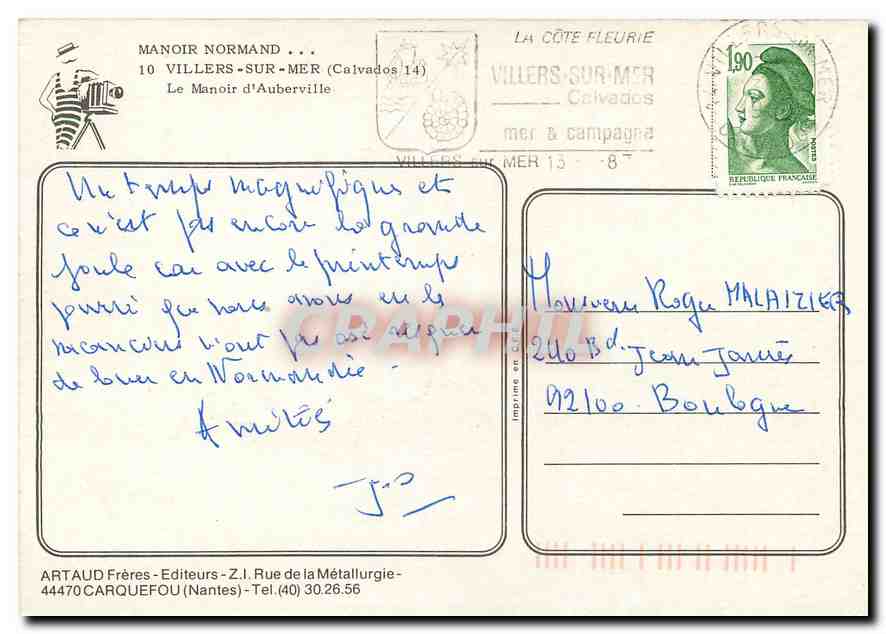 MANOIR NORMAND . . .
10 VILLERS-SUR-MER (Calvados 14)
Le Manoir d'Auberville
LA CÔTE FLEURIE
VILLERS-SUR-MER
Calvados
mer & campagne
VILLERS sur MER 13 - 8
VILLERS SUR MER
1,90
POSTES
REPUBLIQUE FRANÇAISE
Un temps magnifique et
ce n'est pas encore la grande
foule car avec le printemps
pourri que nous avons eu les
vacanciers n'ont pas osé
de louer en Normandie -
Amitiés
CPARAMA
Imprimé en C.E.E.
Monsieur Roger MALAIZIER
240 Bd. Jean Jaurès
92100 Boulogne
ARTAUD Frères - Editeurs - Z.I. Rue de la Métallurgie -
44470 CARQUEFOU (Nantes) - Tel.(40) 30.26.56